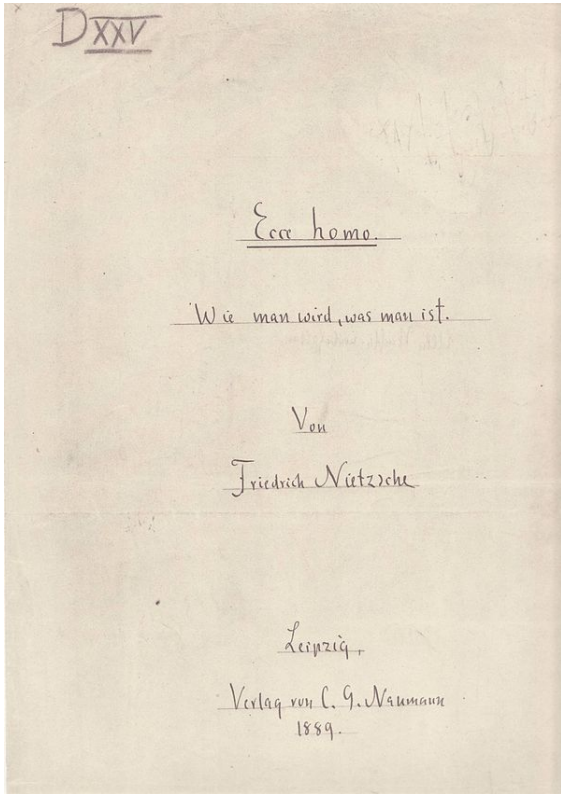 D XXV
Ecce homo.
Wie man wird, was man ist.
Von
Friedrich Nietzsche
Leipzig,
Verlag von C. G. Naumann
1889.